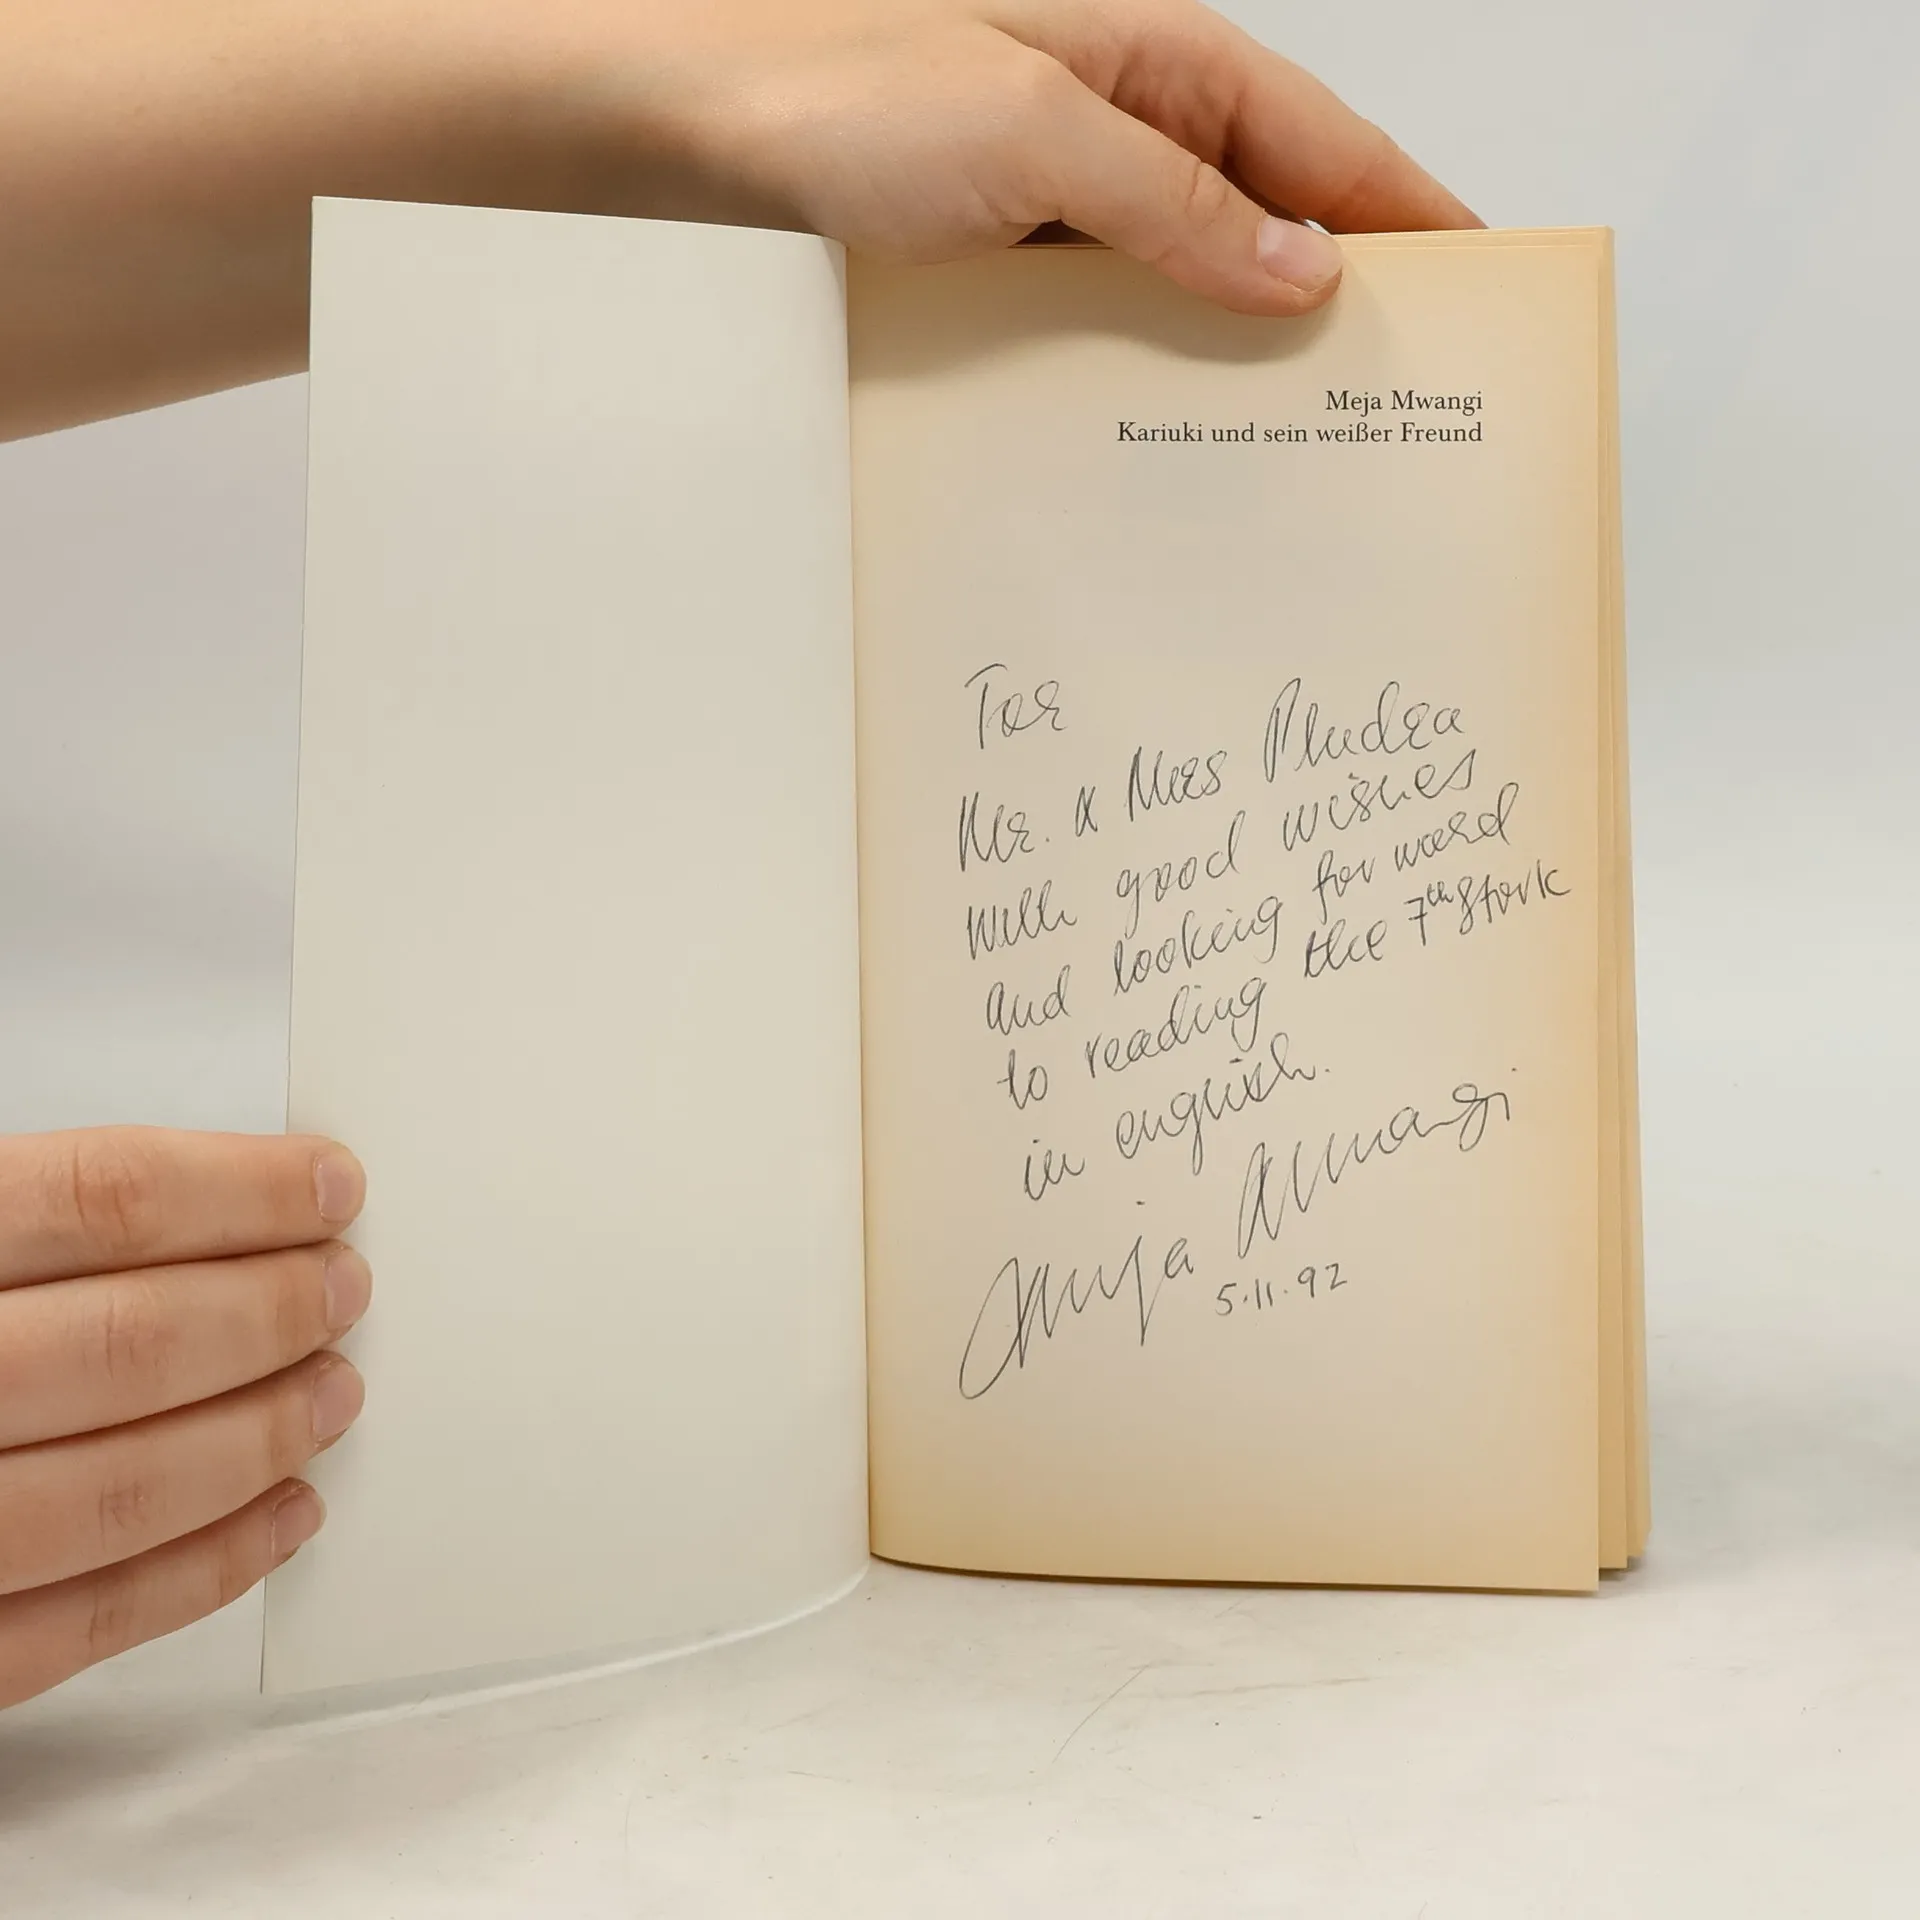 Meja Mwangi
Kariuki und sein weißer Freund
For
Mr. & Mrs Pludra
with good wishes
and looking forward
to reading the 7th Stork
in english.
Meja Mwangi
5.11.92